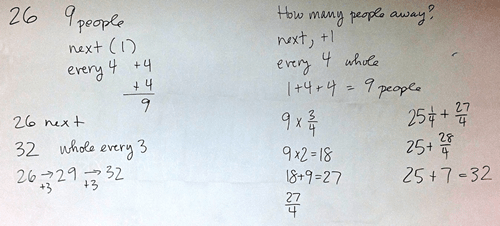 26 9 people
next (1)
every 4 +4
+4
9
26 next
32 whole every 3
26 → 29 → 32
+3 +3
How many people away?
next, +1
every 4 whole
1+4+4 = 9 people
9 × 3/4
9×2=18
18+9=27
27/4
25 1/4 + 27/4
25 + 28/4
25 + 7 = 32